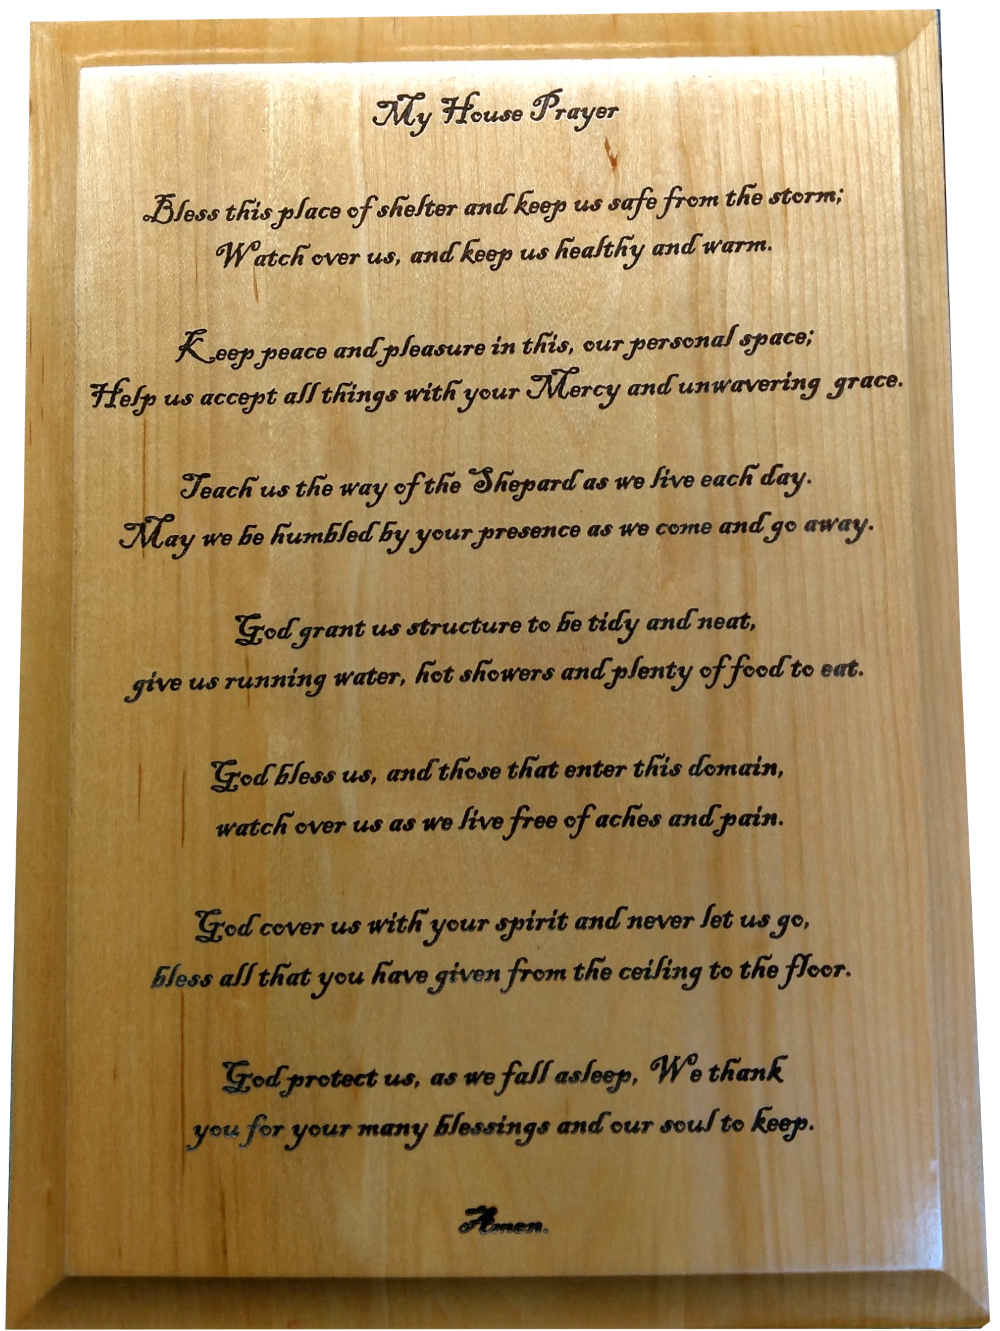 My House Prayer
Bless this place of shelter and keep us safe from the storm;
Watch over us, and keep us healthy and warm.
Keep peace and pleasure in this, our personal space;
Help us accept all things with your Mercy and unwavering grace.
Teach us the way of the Shepard as we live each day.
May we be humbled by your presence as we come and go away.
God grant us structure to be tidy and neat,
give us running water, hot showers and plenty of food to eat.
God bless us, and those that enter this domain,
watch over us as we live free of aches and pain.
God cover us with your spirit and never let us go,
bless all that you have given from the ceiling to the floor.
God protect us, as we fall asleep, We thank
you for your many blessings and our soul to keep.
Amen.